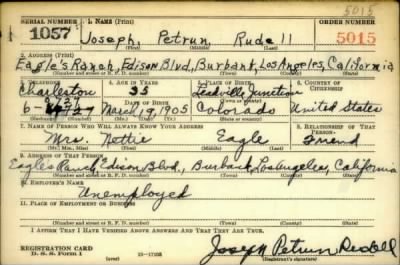 5015
SERIAL NUMBER 1. NAME (Print) ORDER NUMBER
1057 Joseph, Petrun, Rudell 5015
(First) (Middle) (Last)
2. ADDRESS (Print)
Eagle's Ranch, Edison Blvd., Burbank, Los Angeles, California
(Number and street or R. F. D. number) (Town) (County) (State)
3. TELEPHONE 4. AGE IN YEARS 5. PLACE OF BIRTH 6. COUNTRY OF CITIZENSHIP
Charleston 35 Leadville Junction
DATE OF BIRTH
6- March 19, 1905 Colorado United States
7. NAME OF PERSON WHO WILL ALWAYS KNOW YOUR ADDRESS 8. RELATIONSHIP OF THAT PERSON
Mrs. Nottie Eagle Friend
(Mr., Mrs., Miss) (First) (Middle) (Last)
9. ADDRESS OF THAT PERSON
Eagles Ranch Edison Blvd., Burbank, Los Angeles, California
(Number and street or R. F. D. number) (Town) (County) (State)
10. EMPLOYER'S NAME
Unemployed
11. PLACE OF EMPLOYMENT OR BUSINESS
(Number and street or R. F. D. number) (Town) (County) (State)
I AFFIRM THAT I HAVE VERIFIED ABOVE ANSWERS AND THAT THEY ARE TRUE.
REGISTRATION CARD
D. S. S. Form 1 Joseph Petrun Rudell
(Registrant's signature)